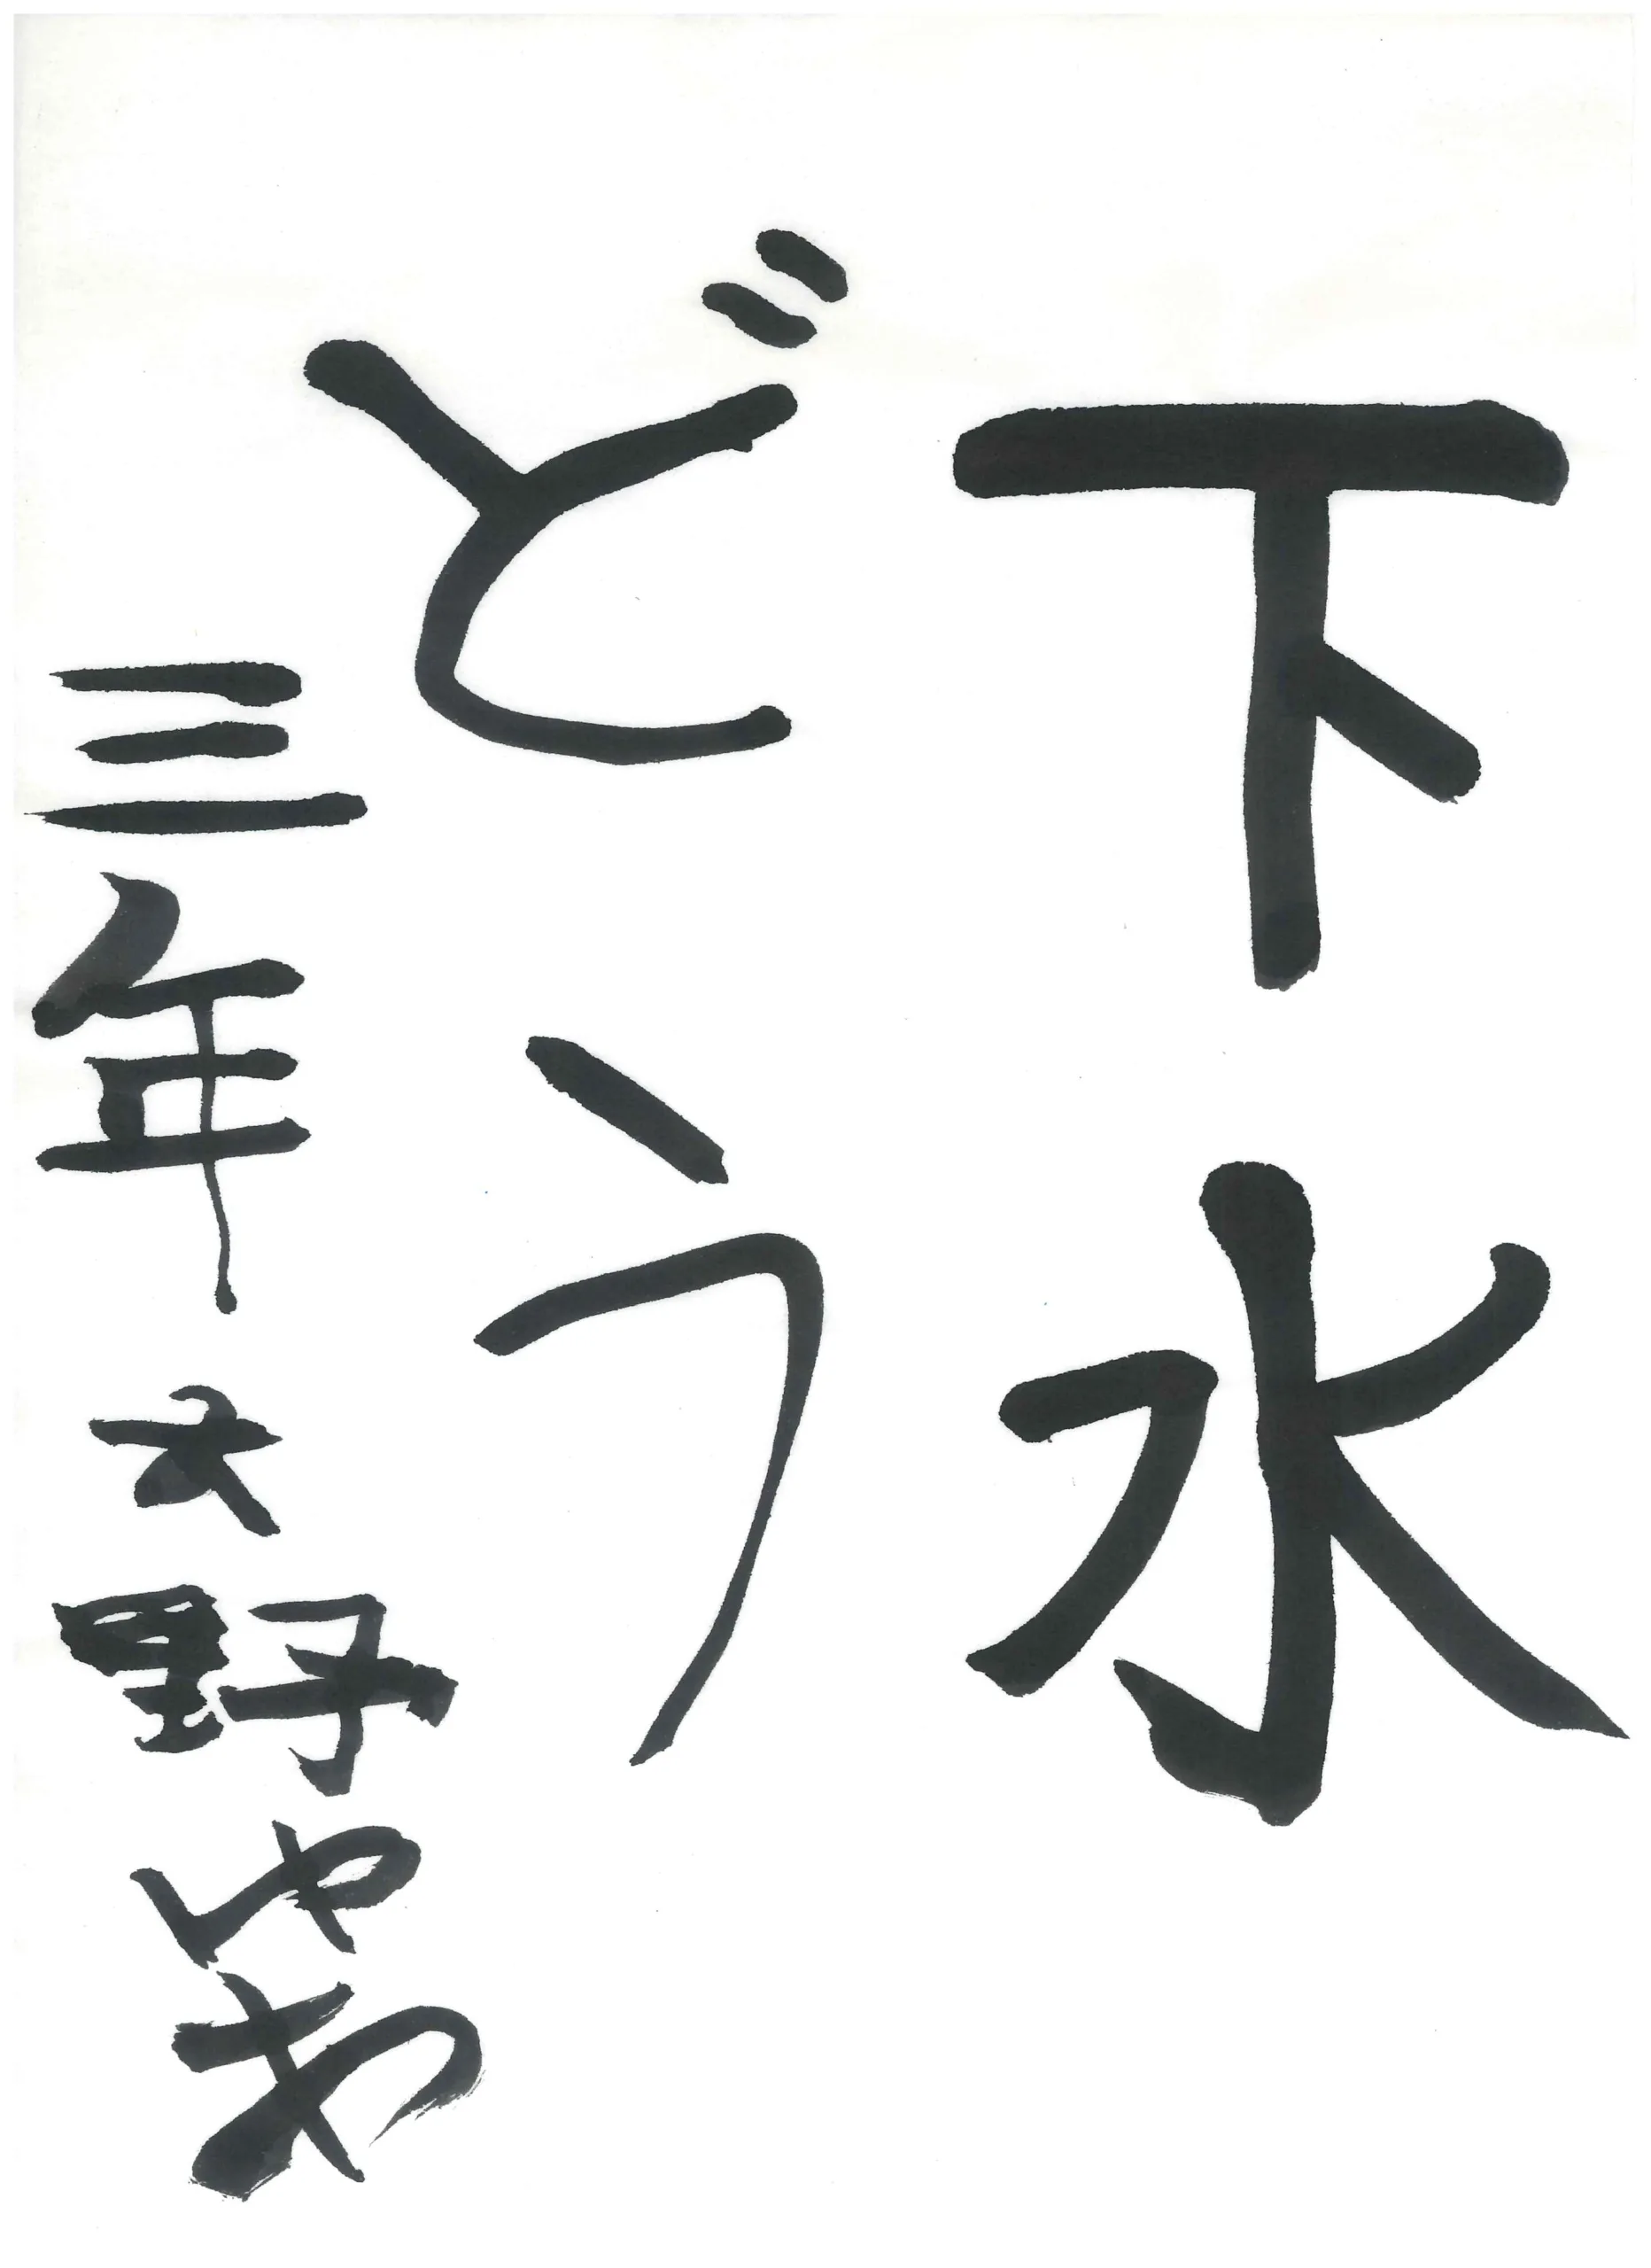 下水
どう
三年大野やわ